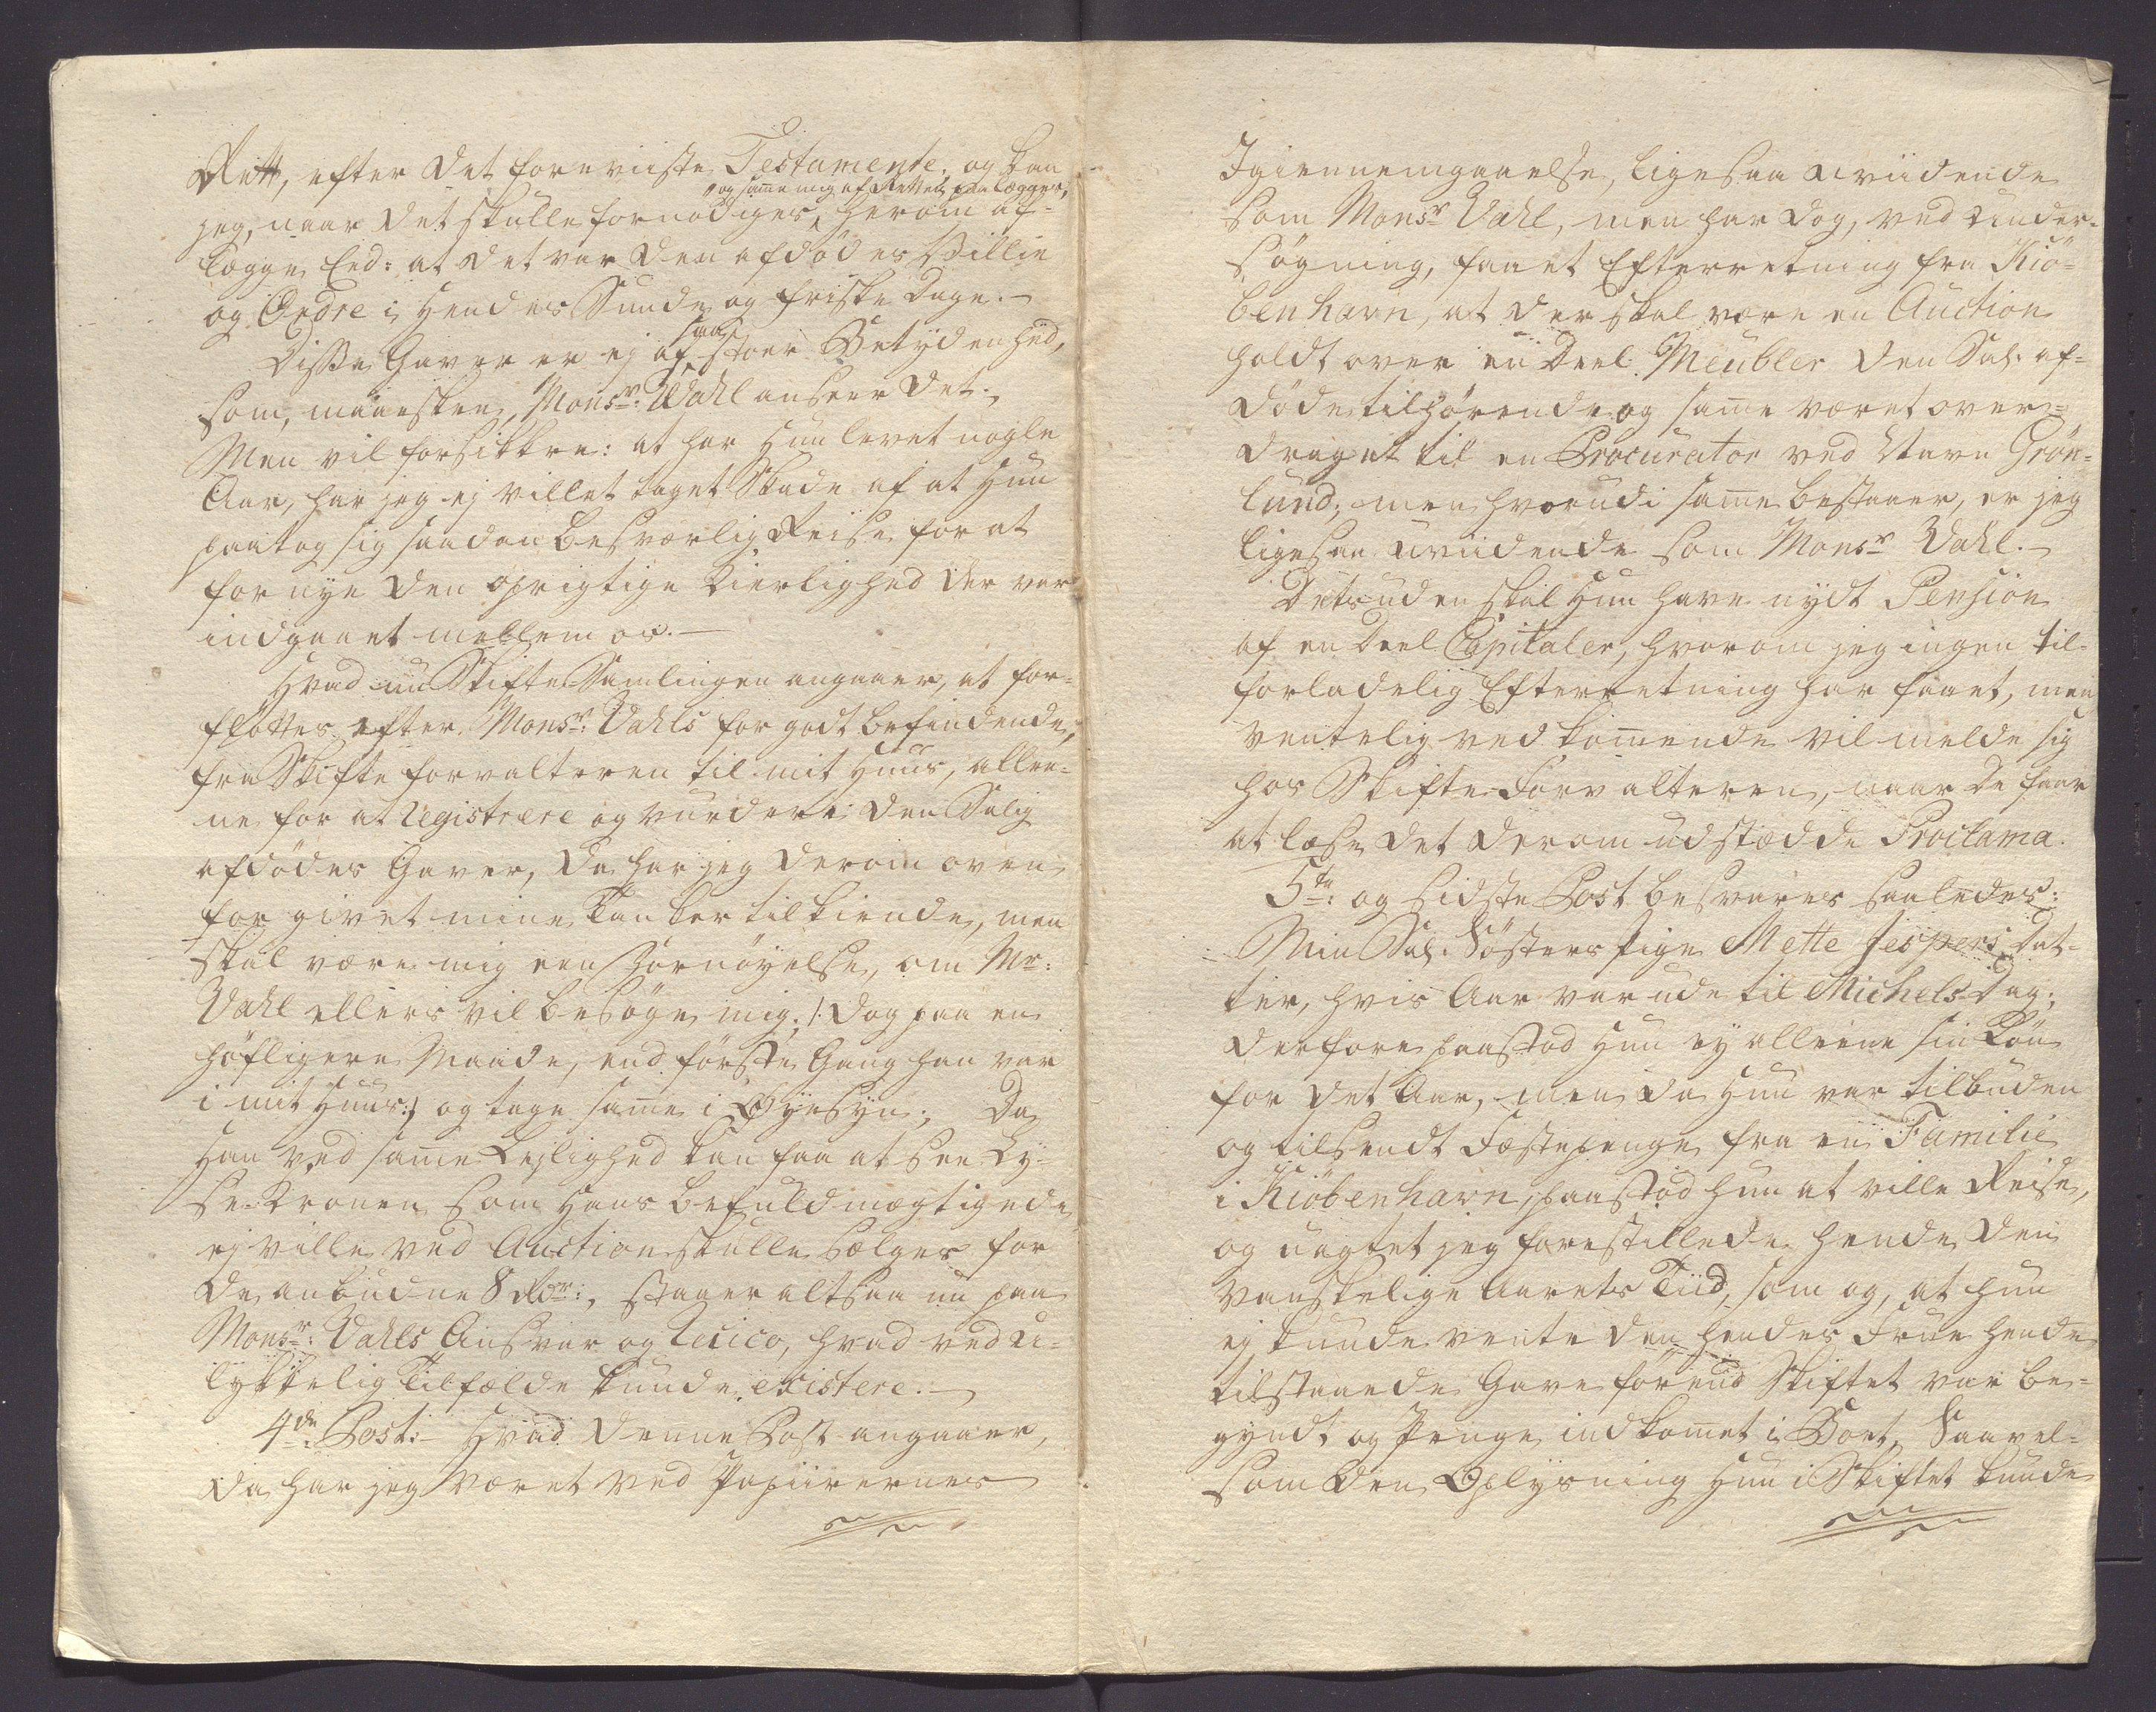 Rett, efter det foreviiste Testamente, og kan
og samme mig af Rettens paalægges,
jeg, naar det skulle fornødiges, herom af-
lægge Eed: at det var den afdødes Villie
og Ordre i Hendes Sunde og friske Dage.-
saa
Disse Gaver er ej af stoer Betydenhed,
som, maaeskee, Monsr: Wahl anseer det.
Men vil forsikkre: at har Hun levet nogle
Aar, har jeg ej villet taget Skade af at Hun
paatog sig saadan besværlig Reise for at
fornye den oprigtige Kierlighed der var
indgaaet mellem os.-
Hvad nu Skifte-Samlingen angaaer, at for-
fløttes efter Monsr: Vahls for godt befindende,
fra Skifteforvalteren til mit Huus, allee-
ne for at registrere og vurdere den Salig
afdødes Gaver, da har jeg derom oven
for givet mine Tanker tilkiende, men
skal være mig een Fornøyelse, om Mr:
Vahl ellers vil besøge mig /: dog paa en
høfligere Maade, end første Gang han var
i mit Huus:/ og tage samme i Øyesyn; Da
Han ved samme Lejlighed kan faa at see Ly-
se-Kronen som Hans befuldmægtigede
ej ville ved Auction skulle sælges for
de anbudne 8 Rdr:, staaer altsaa nu paa
Monsr: Vahls Ansvar og Reicico, hvad ved u-
lykkelig Tilfælde kunde existere.-
4de: Post:- Hvad denne Post angaaer,
da har jeg været ved Papiirernes
Igiennemgaaelse, ligesaa uviidende
som Monsr Vahl, men har dog, ved under-
søgning, faaet Efterretning fra Kiö-
benhavn, at der skal være en Auction
holdt over en Deel Meubler den Sal: af-
døde tilhørende og samme været over-
draget til en Procurator ved Navn Grön-
lund; men hvorudi samme bestaaer, er jeg
ligesaa uviidende som Monsr Vahl.-
Desuden skal Hun have nydt Pension
af en Deel Capitaler, hvorom jeg ingen til-
forladelig Efterretning har faaet, men
ventelig vedkommende vil melde sig
hos Skifte-Forvalteren, naar de faar
at læse det derom udstædde Proclama.
5te: og sidste Post besvares saaledes:
Min Sal: Søsters Pige Mette Jespers Dat-
ter, hvis Aar var ude til Michels-Dag;
derfore paastod Hun ey alleene sin Løn
for det Aar, men da Hun var tilbuden
og tilsendt Fæstepenge fra en Familie
i Kiöbenhavn, paastod hun at ville Reise,
og uagtet jeg forestillede hende den
vanskelige Aarets Tiid, som og, at hun
ej kunde vente den hendes Frue hende
tilstaaede Gave førend Skiftet var be-
gyndt og Penge indkommet i Boet, Saavel-
som den Oplysning Hun i Skiftet kunde